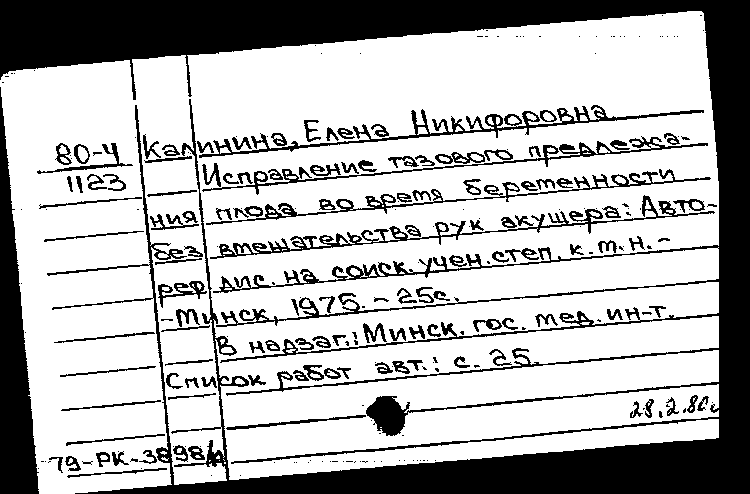 80-4 Калинина, Елена Никифоровна
1123 Исправление тазового предлежа-
ния плода во время беременности
без вмешательства рук акушера: Авто-
реф. дис. на соиск. учен. степ. к. м. н. -
- Минск, 1975. - 25с.
В надзаг.: Минск. гос. мед. ин-т.
Список работ авт.: с. 25.
28.2.80г
79-РК-3898